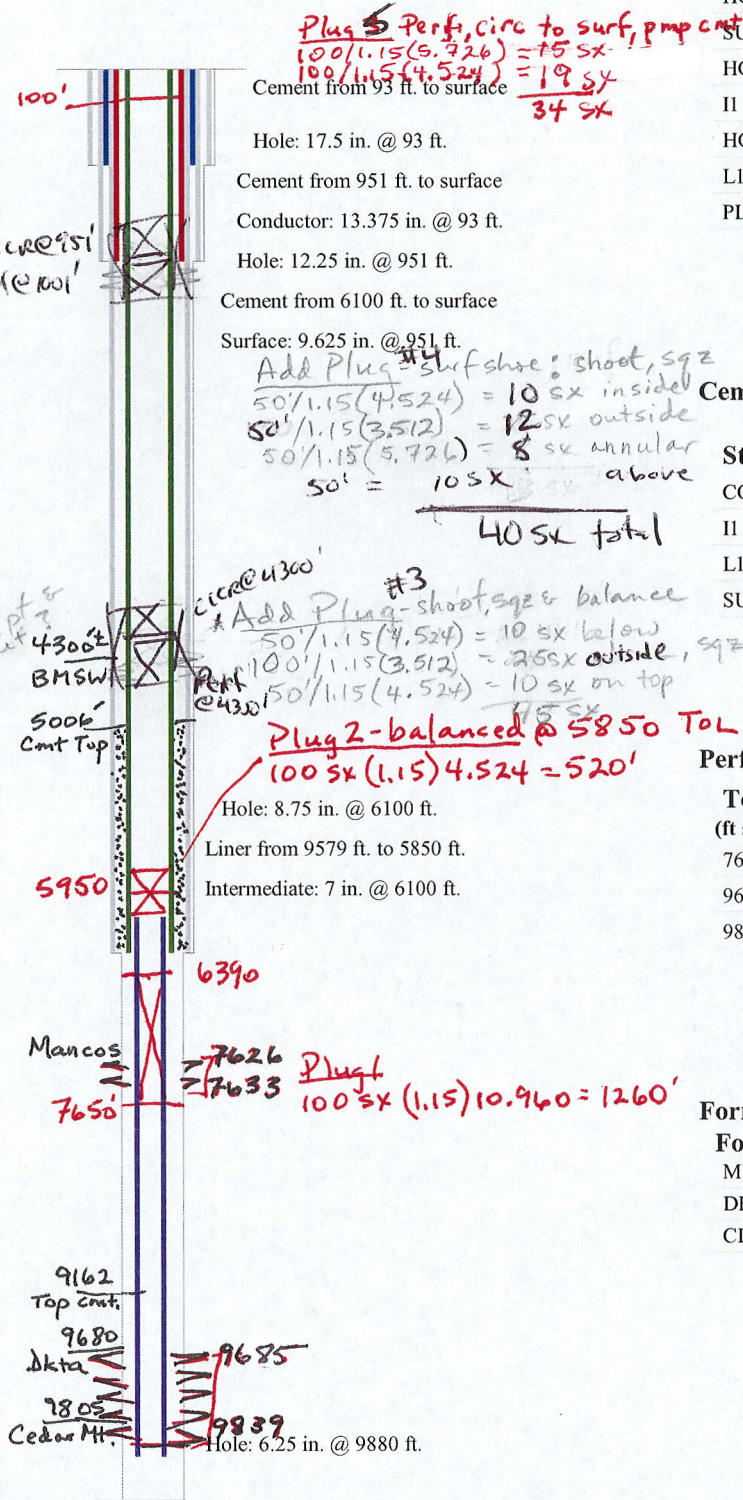 Plug 5 Perf, circ to surf, pmp cmt
100/1.15(5.726) = 15 sx
100/1.15(4.524) = 19 sx
34 sx
100'
Cement from 93 ft. to surface
Hole: 17.5 in. @ 93 ft.
Cement from 951 ft. to surface
Conductor: 13.375 in. @ 93 ft.
CICR@951'
@1001'
Hole: 12.25 in. @ 951 ft.
Cement from 6100 ft. to surface
Surface: 9.625 in. @ 951 ft.
Add Plug #4 - surf shoe: shoot, sqz
50'/1.15(4.524) = 10 sx inside
50'/1.15(3.512) = 12 sx outside
50'/1.15(5.726) = 8 sx annular
50' = 10 sx above
40 sx total
CICR@4300'
#3
*Add Plug - shoot, sqz & balance
50'/1.15(4.524) = 10 sx below
100'/1.15(3.512) = 25 sx outside, sqz
50'/1.15(4.524) = 10 sx on top
45 sx
4300'±
BMSW
Perf @4350'
5006'
Cmt Top
Plug 2 - balanced @ 5850 TOL
100 sx (1.15) 4.524 = 520'
Hole: 8.75 in. @ 6100 ft.
Liner from 9579 ft. to 5850 ft.
5950
Intermediate: 7 in. @ 6100 ft.
6390
Mancos
7626
7633
Plug 1
100 sx (1.15) 10.960 = 1260'
7650'
9162
Top Cmt.
9680
Dkta
9685
9805
Cedar Mt.
9839
Hole: 6.25 in. @ 9880 ft.
SU
HO
I1
HO
L1
PL
Cem
St
CO
I1
L1
SU
Perf
To
(ft
76
96
98
Form
Fo
M